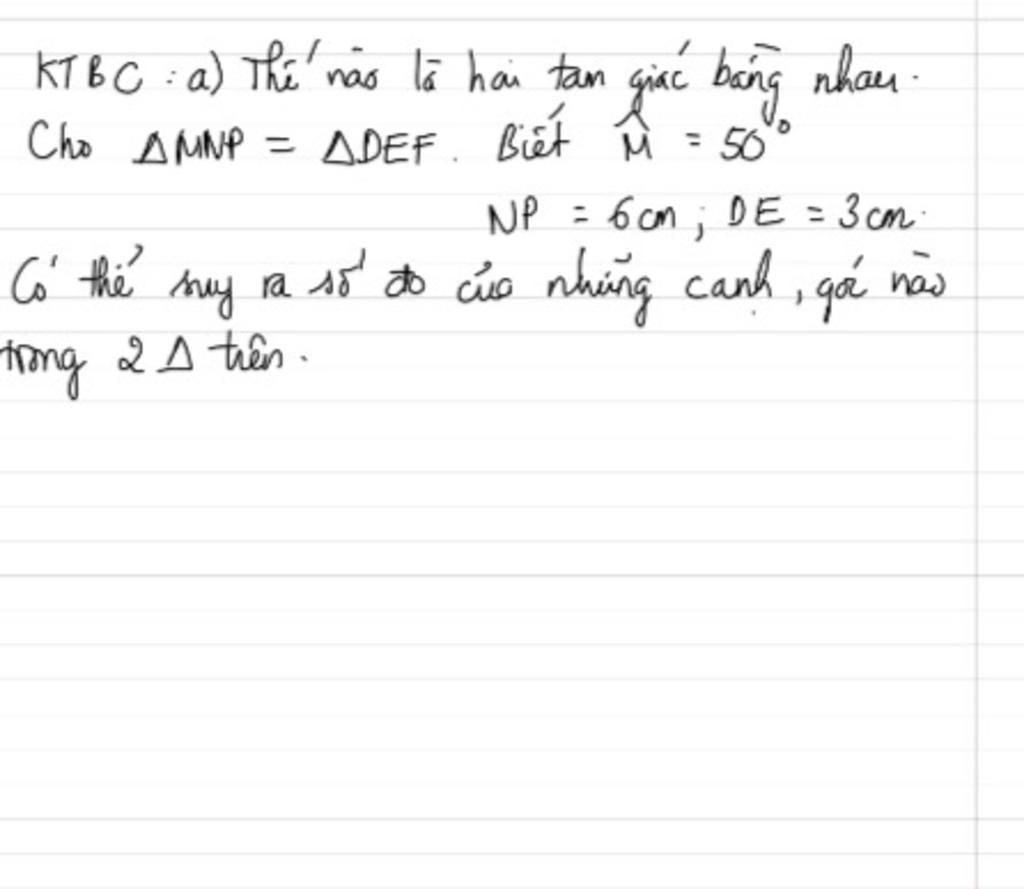 KTBC : a) Thế nào là hai tam giác bằng nhau.
Cho ΔMNP = ΔDEF. Biết M̂ = 50°
NP = 6cm ; DE = 3cm.
Có thể suy ra số đo của những cạnh, góc nào
trong 2 Δ trên.